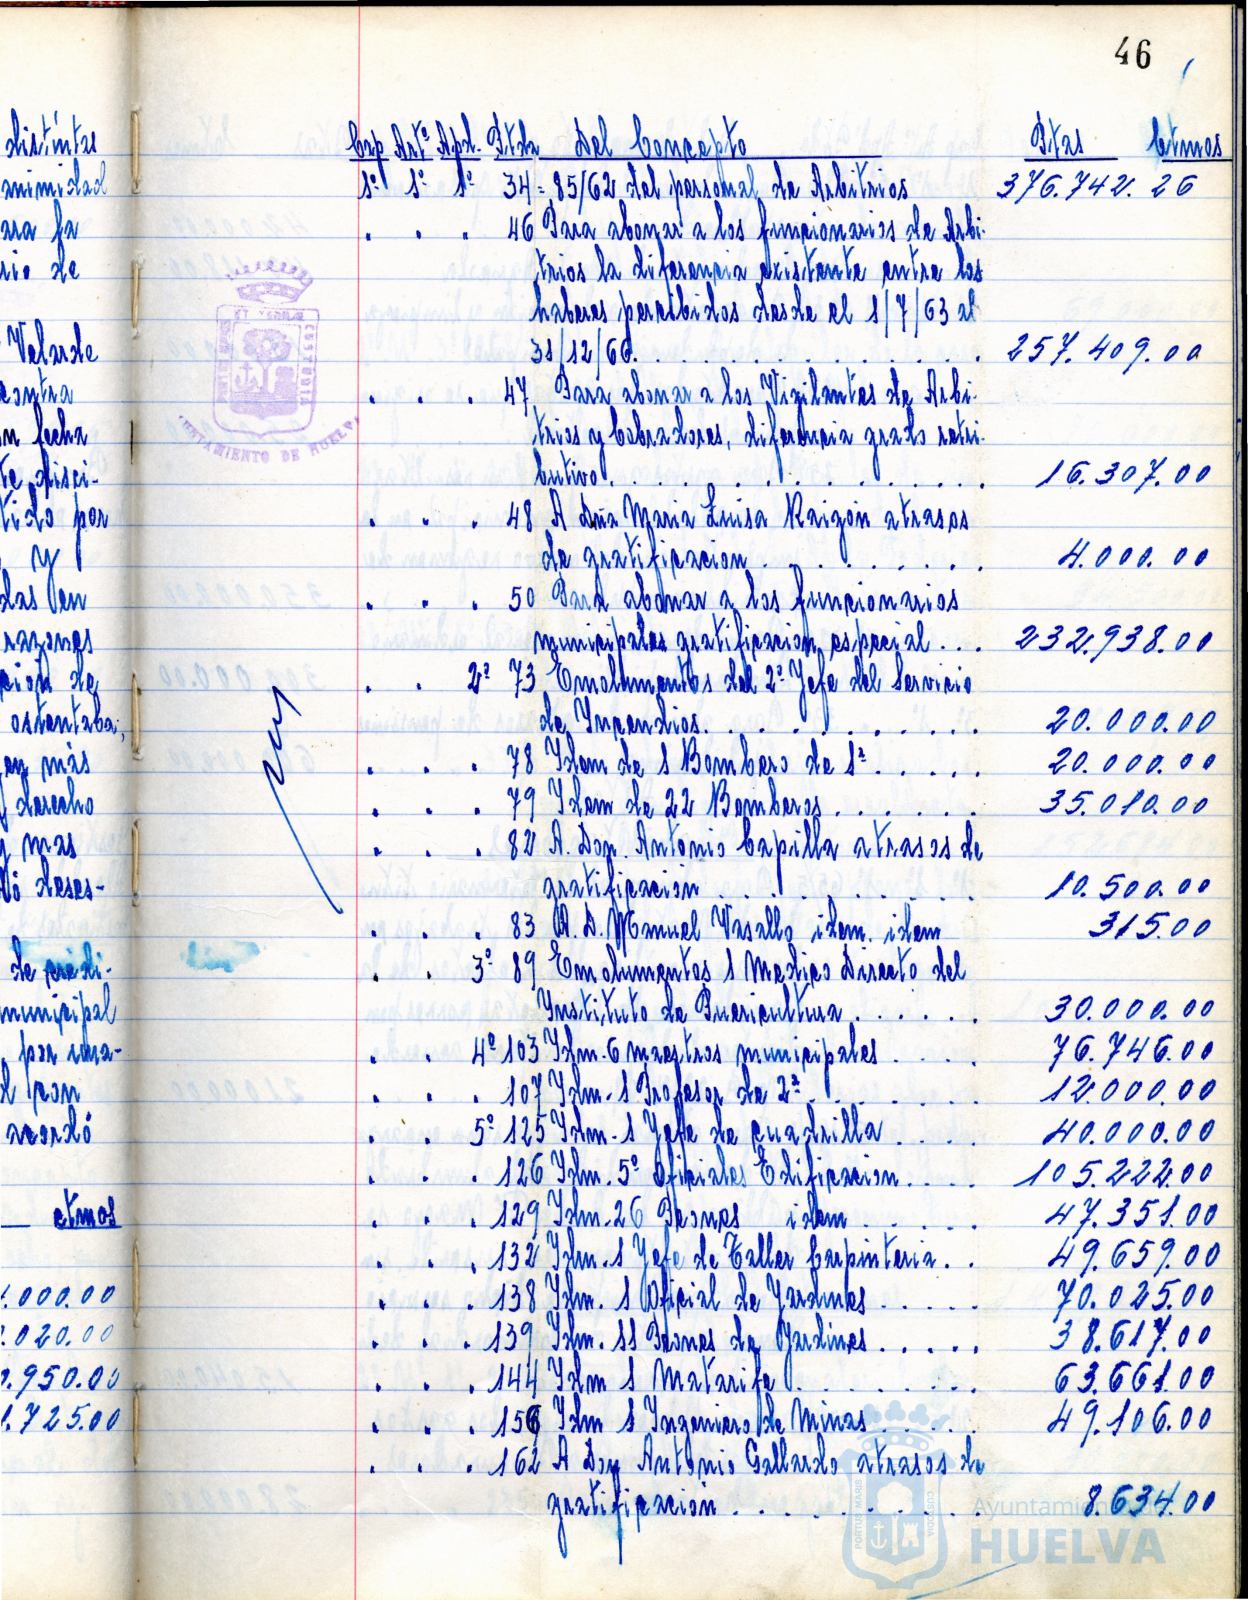 46
distintas
animidad
ara la
rio de
Velarde
contra
n fecha
te disci-
tido por
y
das en
razones
cion de
ostentaba;
en más
y derecho
y mas
dó deses-
de credi-
municipal
por una-
d con
acordó
ctmos
.000.00
.020.00
.950.00
.725.00
Cap Artº Apd. Ptda Del Concepto Ptas Ctmos
1º 1º 1º 34= 85/62 del personal de Arbitrios 376.742.26
. . . 46 Para abonar a los funcionarios de Arbi-
trios la diferencia existente entre los
haberes percibidos desde el 1/7/63 al
31/12/66. 257.409.00
. . . 47 Para abonar a los Vigilantes de Arbi-
trios y Cobradores, diferencia grado retri-
butivo. 16.307.00
. . . 48 A Dña Maria Luisa Raizón atrasos
de gratificacion 4.000.00
. . . 50 Para abonar a los funcionarios
municipales gratificacion especial... 232.938.00
. . 2º 73 Emolumentos del 2º Jefe del Servicio
de Incendios. 20.000.00
. . . 78 Idem de 1 Bombero de 1ª 20.000.00
. . . 79 Idem de 22 Bomberos 35.010.00
. . . 82 A. Don. Antonio Capilla atrasos de
gratificación 10.500.00
. . . 83 A. D. Manuel Vasallo idem. idem 315.00
. . 3º 89 Emolumentos 1 Medico Directo del
Instituto de Puericultura 30.000.00
. . 4º 103 Idm. 6 maestros municipales 76.746.00
. . . 107 Idm. 1 Profesor de 2ª 12.000.00
. . 5º 125 Idm. 1 Jefe de cuadrilla 40.000.00
. . . 126 Idm. 5º Oficiales Edificacion 105.222.00
. . . 129 Idm. 26 Peones idem 47.351.00
. . . 132 Idm. 1 Jefe de Taller Carpinteria 49.659.00
. . . 138 Idm. 1 Oficial de Jardines 70.025.00
. . . 139 Idm. 11 Peones de Jardines 38.617.00
. . . 144 Idm 1 Matarife 63.661.00
. . . 156 Idm 1 Ingeniero de Minas 49.106.00
. . . 162 A Don Antonio Gallardo atrasos de
gratificación 8.634.00
AYUNTAMIENTO DE HUELVA
Ayuntamiento de
HUELVA